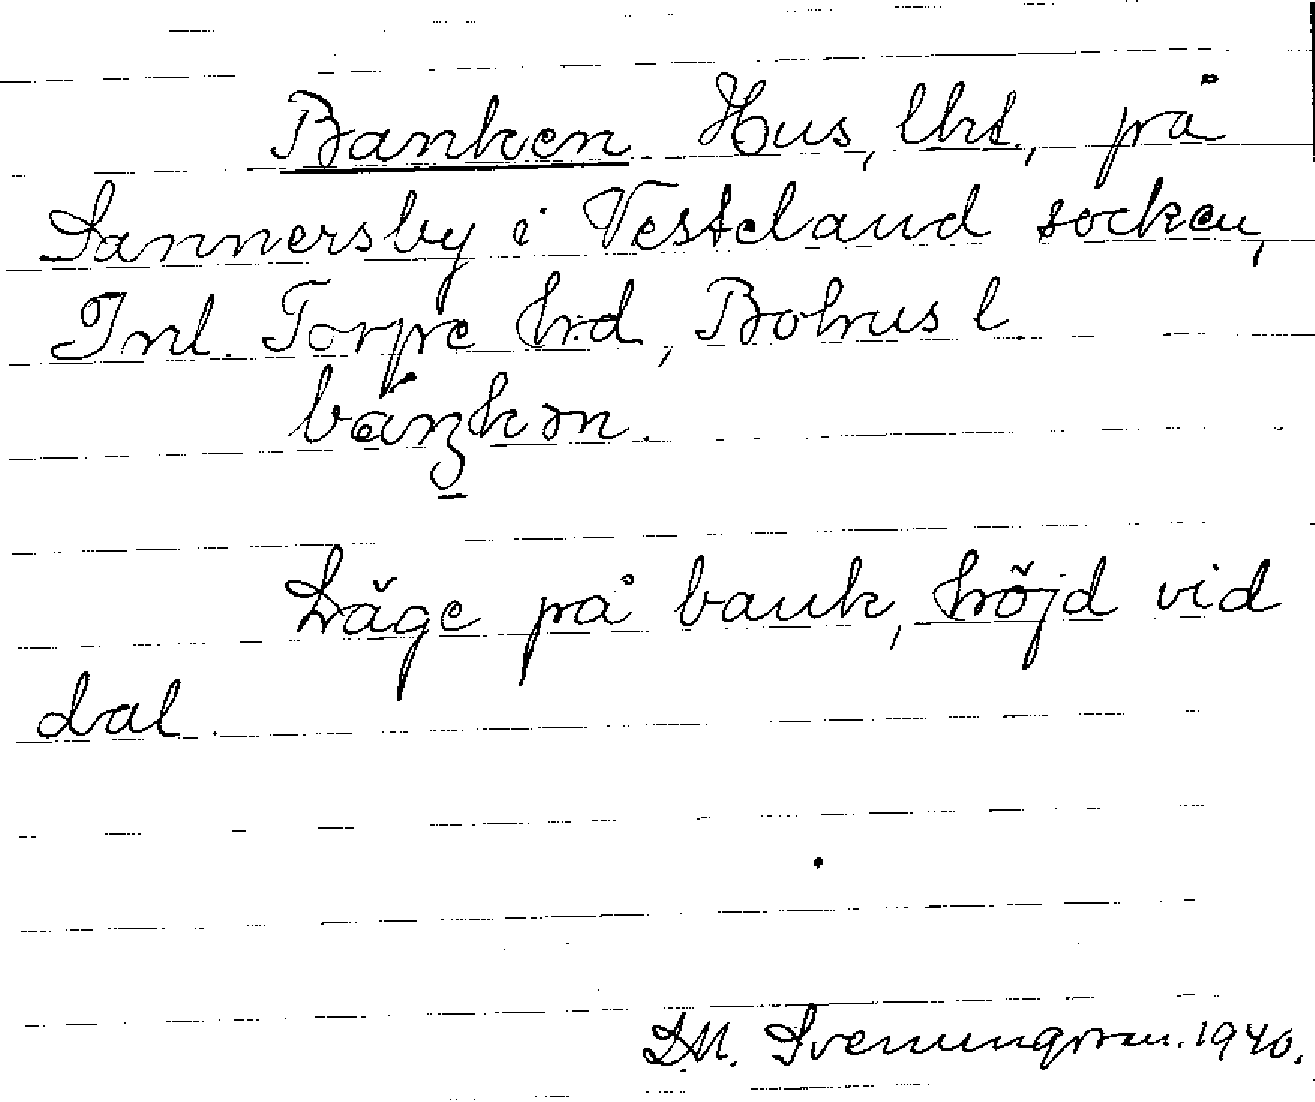 Banken Hus, lht., på
Sannersby i Vesteland socken,
Inl. Torpe hrd, Bohus l
Läge på bank, höjd vid
dal.
D.M. Svenungsson. 1940.